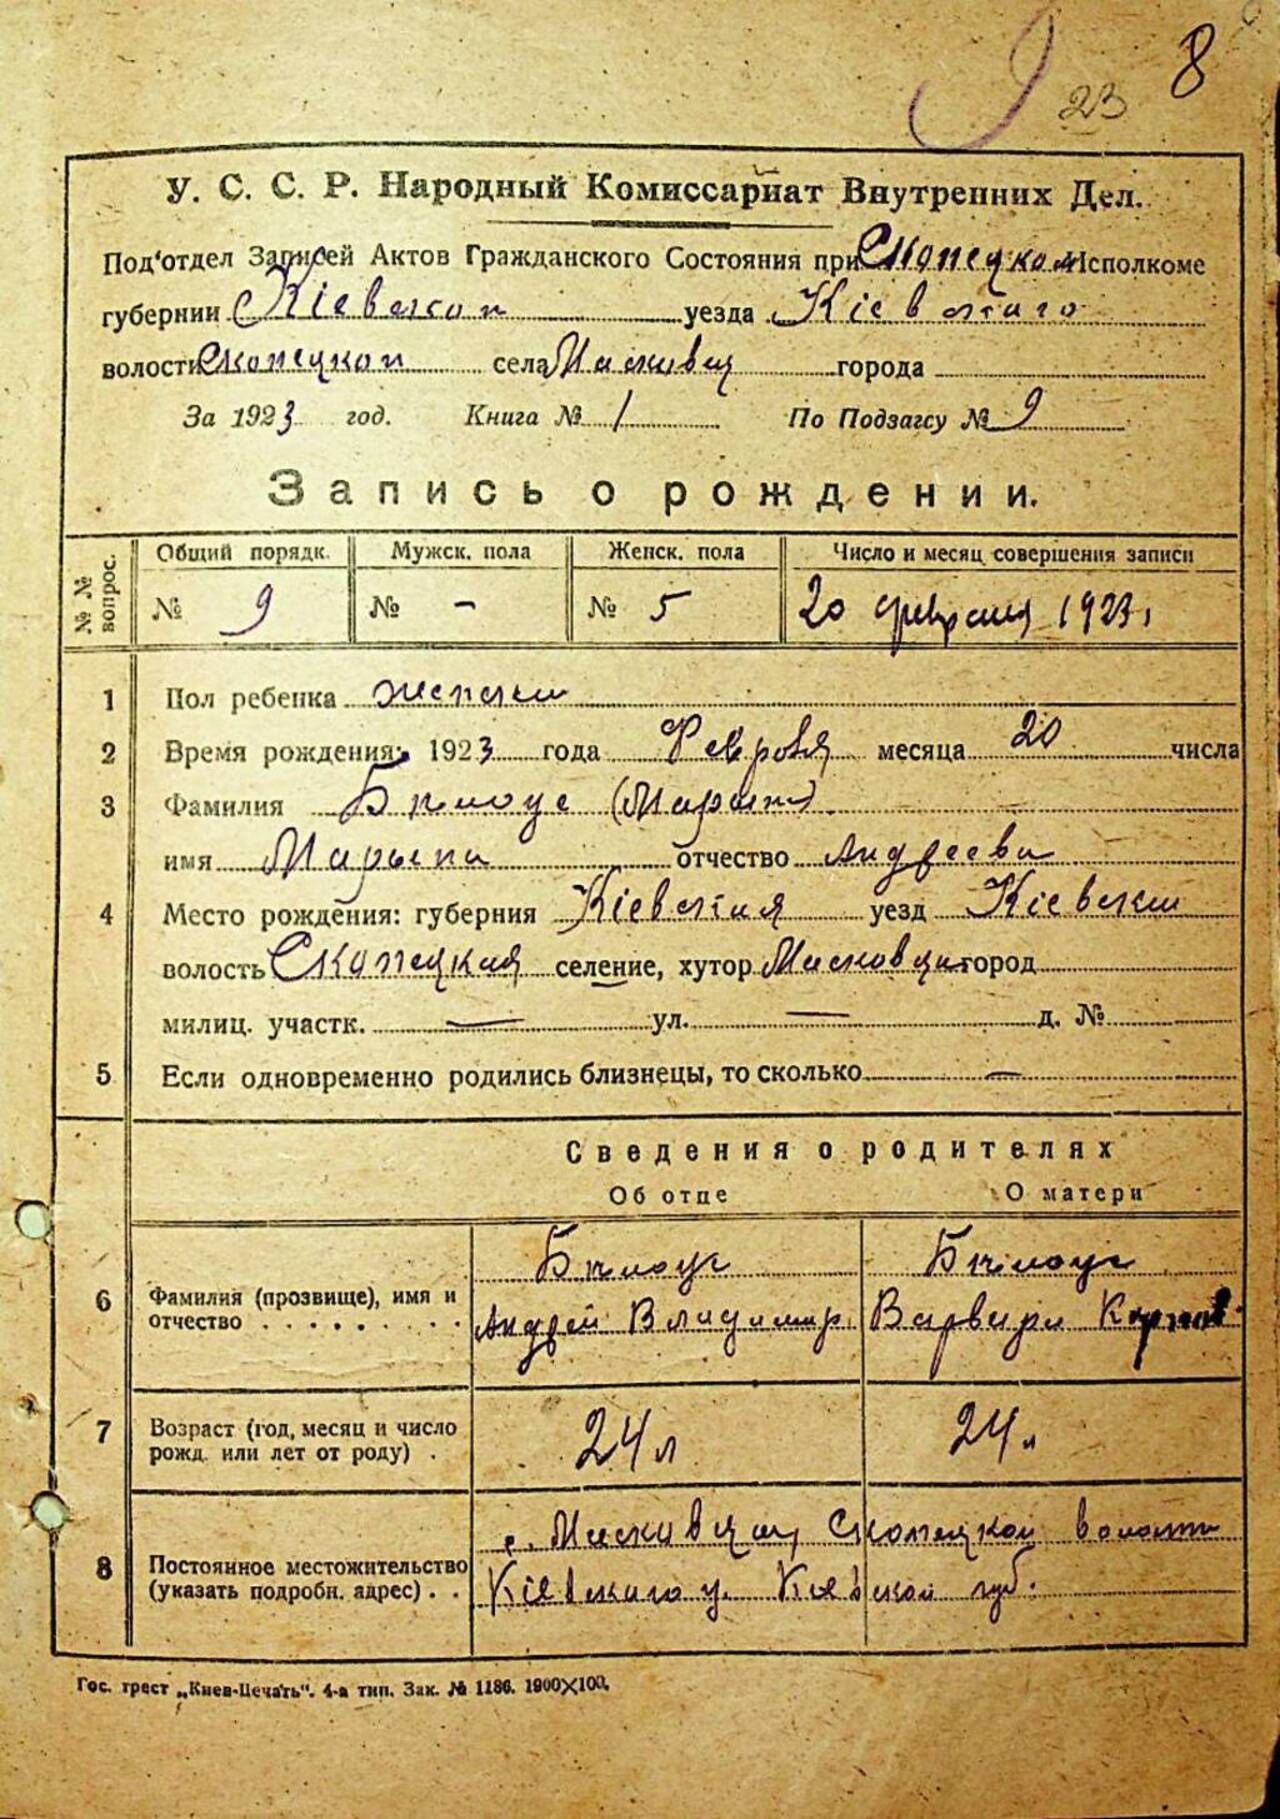 9 23 8
У. С. С. Р. Народный Комиссариат Внутренних Дел.
Под'отдел Записей Актов Гражданского Состояния при Скопецком Исполкоме
губернии Кіевской уезда Кіевского
волости Скопецкой села города
За 1923 год. Книга № 1 По Подзагсу № 9
Запись о рождении.
№ № вопрос. Общий порядк. Мужск. пола Женск. пола Число и месяц совершения записи
№ 9 № - № 5 20 февраля 1923 г
1 Пол ребенка женский
2 Время рождения: 1923 года Февроля месяца 20 числа
3 Фамилия Билоус
имя отчество Андреева
4 Место рождения: губерния Кіевская уезд Кіевский
волость Скопецкая селение, хутор город
милиц. участк. — ул. — д. №
5 Если одновременно родились близнецы, то сколько —
Сведения о родителях
Об отце О матери
Билоус Билоус
6 Фамилия (прозвище), имя и
отчество . . . . . . . . . Андрей Владимир. Варвара
7 Возраст (год, месяц и число
рожд. или лет от роду) . 24 л 24 л
с. Скопецкой волости
8 Постоянное местожительство
(указать подробн. адрес) . . Кіевского у. Киевской губ.
Гос. трест „Киев-Печать“. 4-а тип. Зак. № 1186. 1900×100.